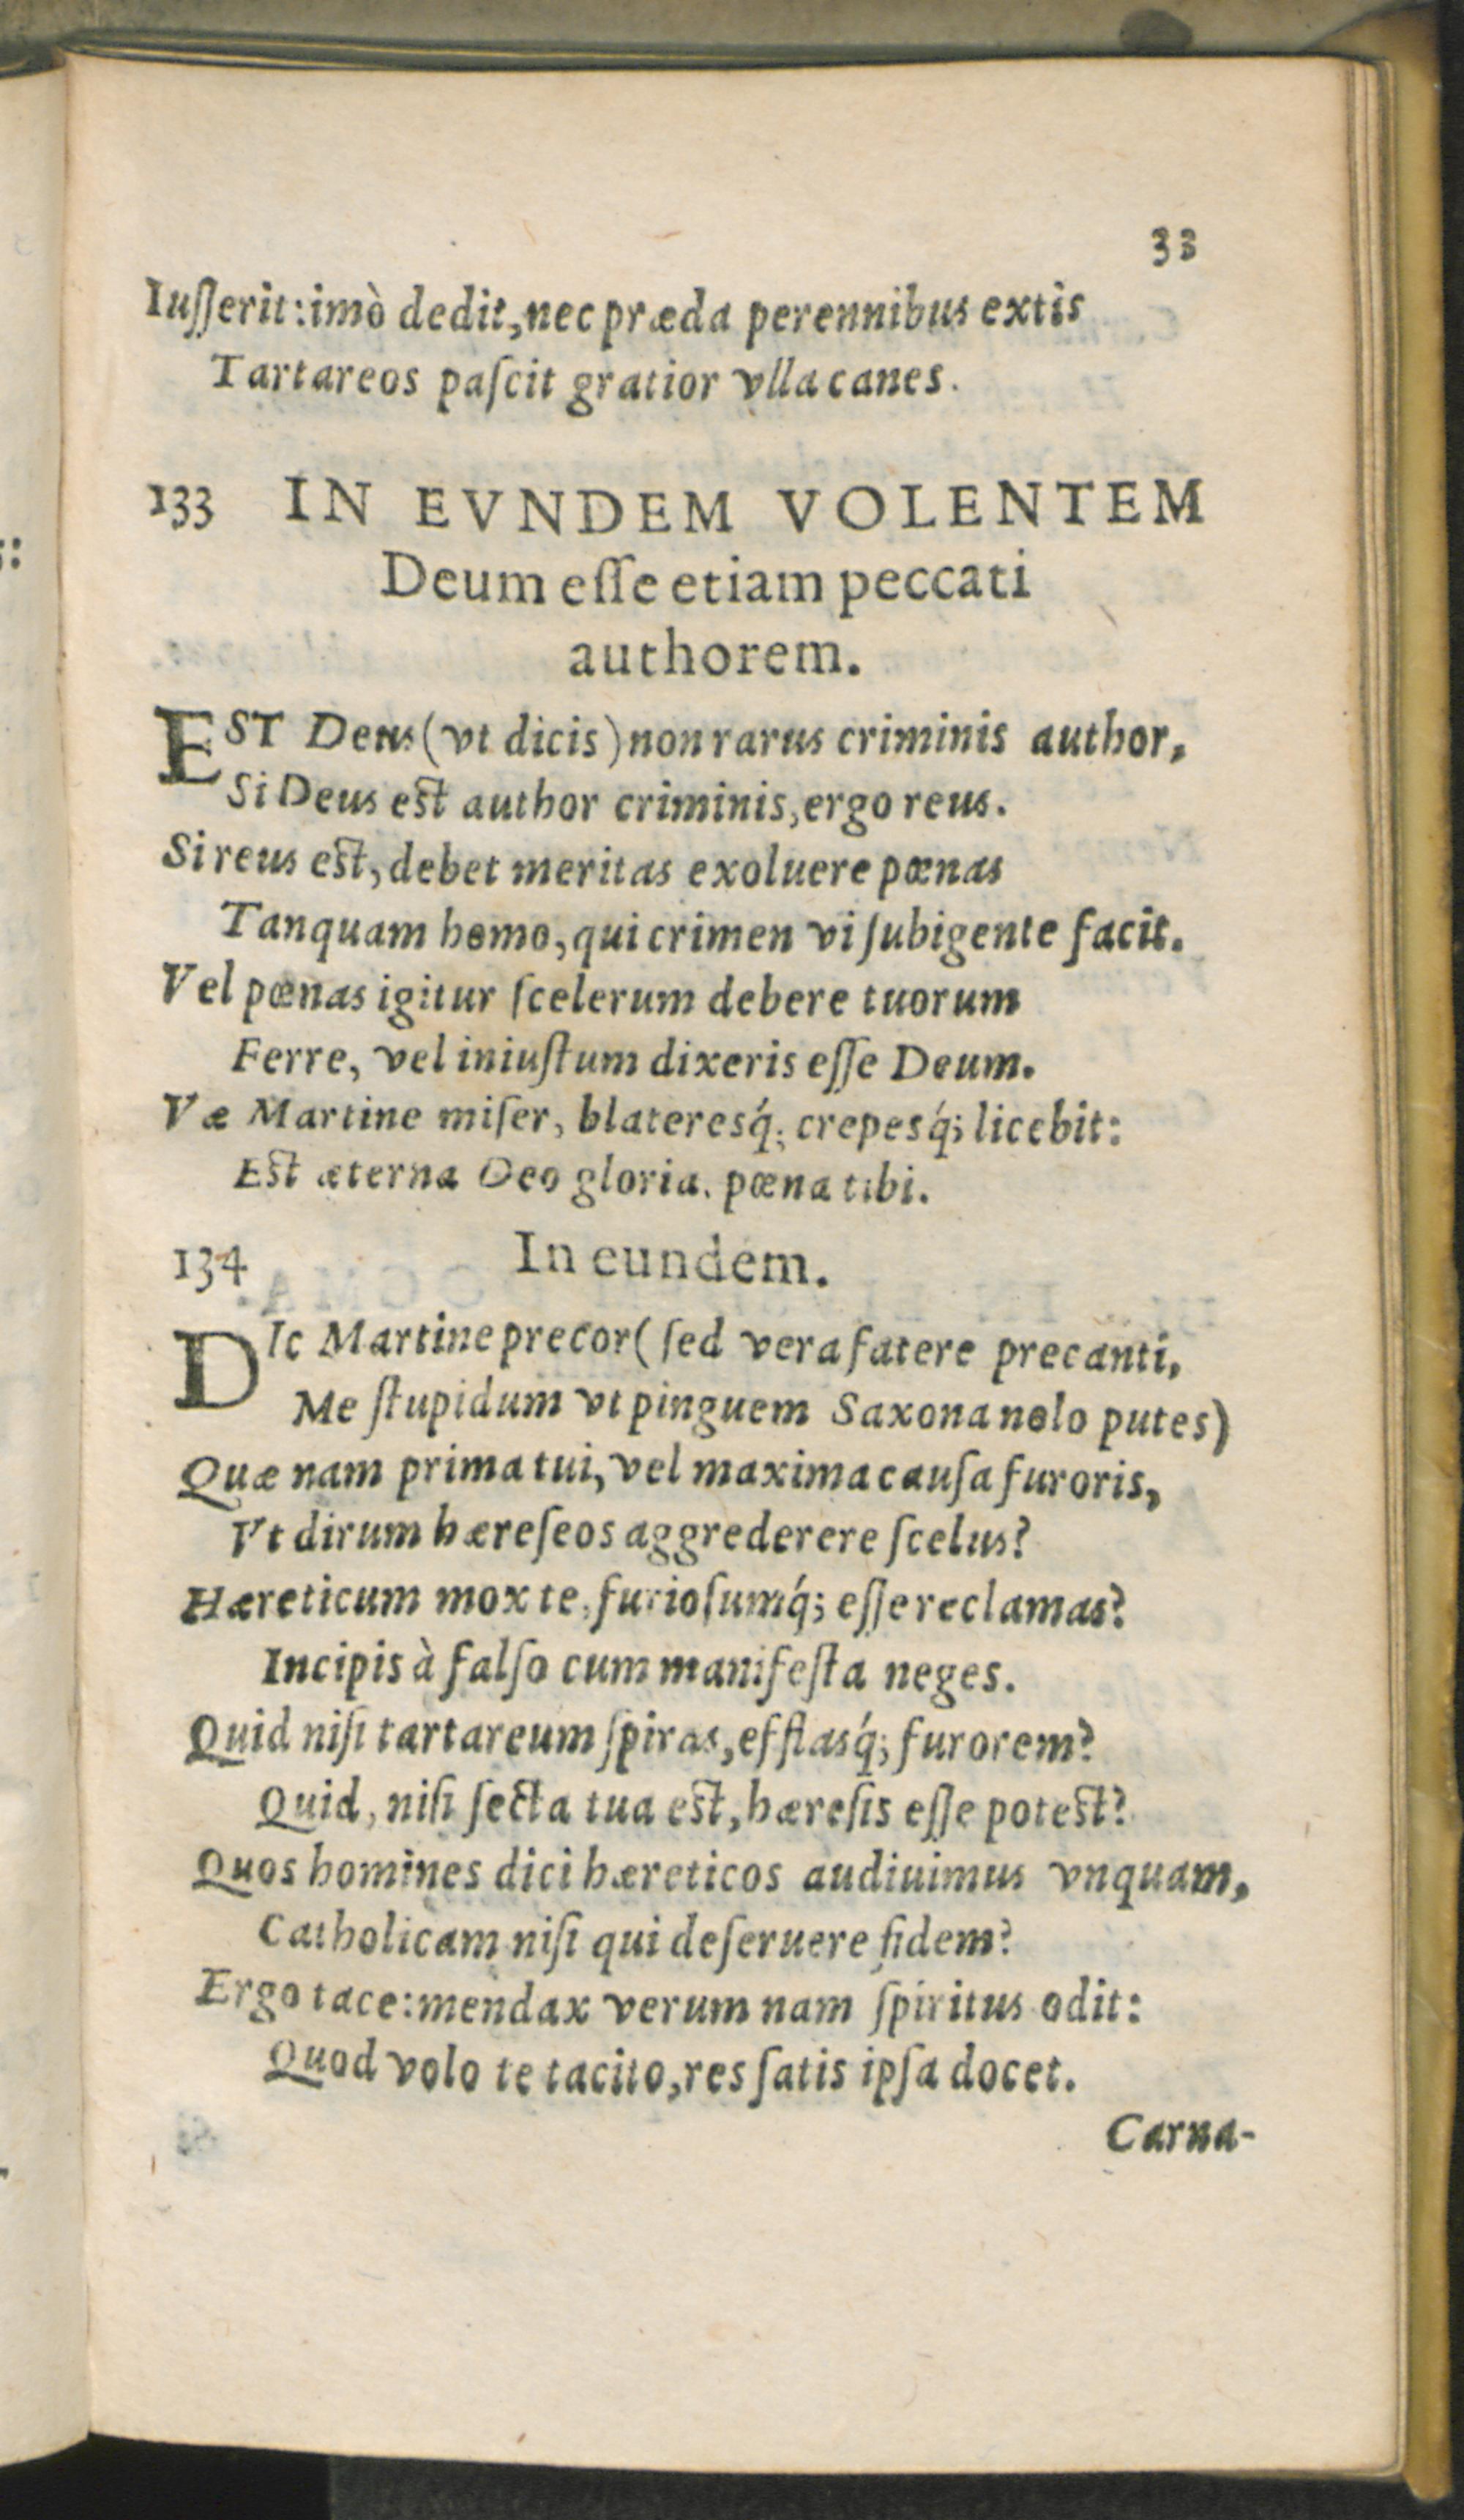 33
Iuſſerit: imò dedit, nec præda perennibus extis
Tartareos paſcit gratior vlla canes.
133 IN EVNDEM VOLENTEM
Deum eſſe etiam peccati
authorem.
EST Deus (vt dicis) non rarus criminis author,
Si Deus est author criminis, ergo reus.
Si reus est, debet meritas exoluere pœnas
Tanquam homo, qui crimen vi ſubigente facit.
Vel pœnas igitur ſcelerum debere tuorum
Ferre, vel iniuſtum dixeris eſſe Deum.
Væ Martine miſer, blateresq́; crepesq́; licebit:
Est æterna Deo gloria, pœna tibi.
134 In eundem.
DIc Martine precor (ſed vera fatere precanti,
Me ſtupidum vt pinguem Saxona nolo putes)
Quæ nam prima tui, vel maxima cauſa furoris,
Vt dirum hæreſeos aggrederere ſcelus?
Hæreticum mox te, furioſumq́; eſſe reclamas?
Incipis à falſo cum manifeſta neges.
Quid niſi tartareum ſpiras, efflasq́; furorem?
Quid, niſi ſecta tua est, hæreſis eſſe potest?
Quos homines dici hæreticos audiuimus vnquam,
Catholicam niſi qui deſeruere fidem?
Ergo tace: mendax verum nam ſpiritus odit:
Quod volo te tacito, res ſatis ipſa docet.
Carna-